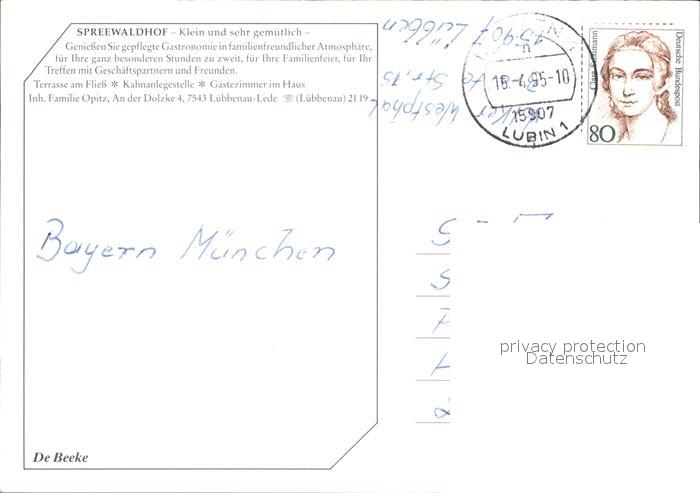 SPREEWALDHOF – Klein und sehr gemütlich –
Genießen Sie gepflegte Gastronomie in familienfreundlicher Atmosphäre,
für Ihre ganz besonderen Stunden zu zweit, für Ihre Familienfeier, für Ihr
Treffen mit Geschäftspartnern und Freunden.
Terrasse am Fließ ✻ Kahnanlegestelle ✻ Gästezimmer im Haus
Inh. Familie Opitz, An der Dolzke 4, 7543 Lübbenau-Lede ☏ (Lübbenau) 21 19
Bayern München
De Beeke
Westphal
Str. 15
15907 Lübben
15907
LUBIN 1
Clara Schumann
Deutsche Bundespost
80
privacy protection
Datenschutz